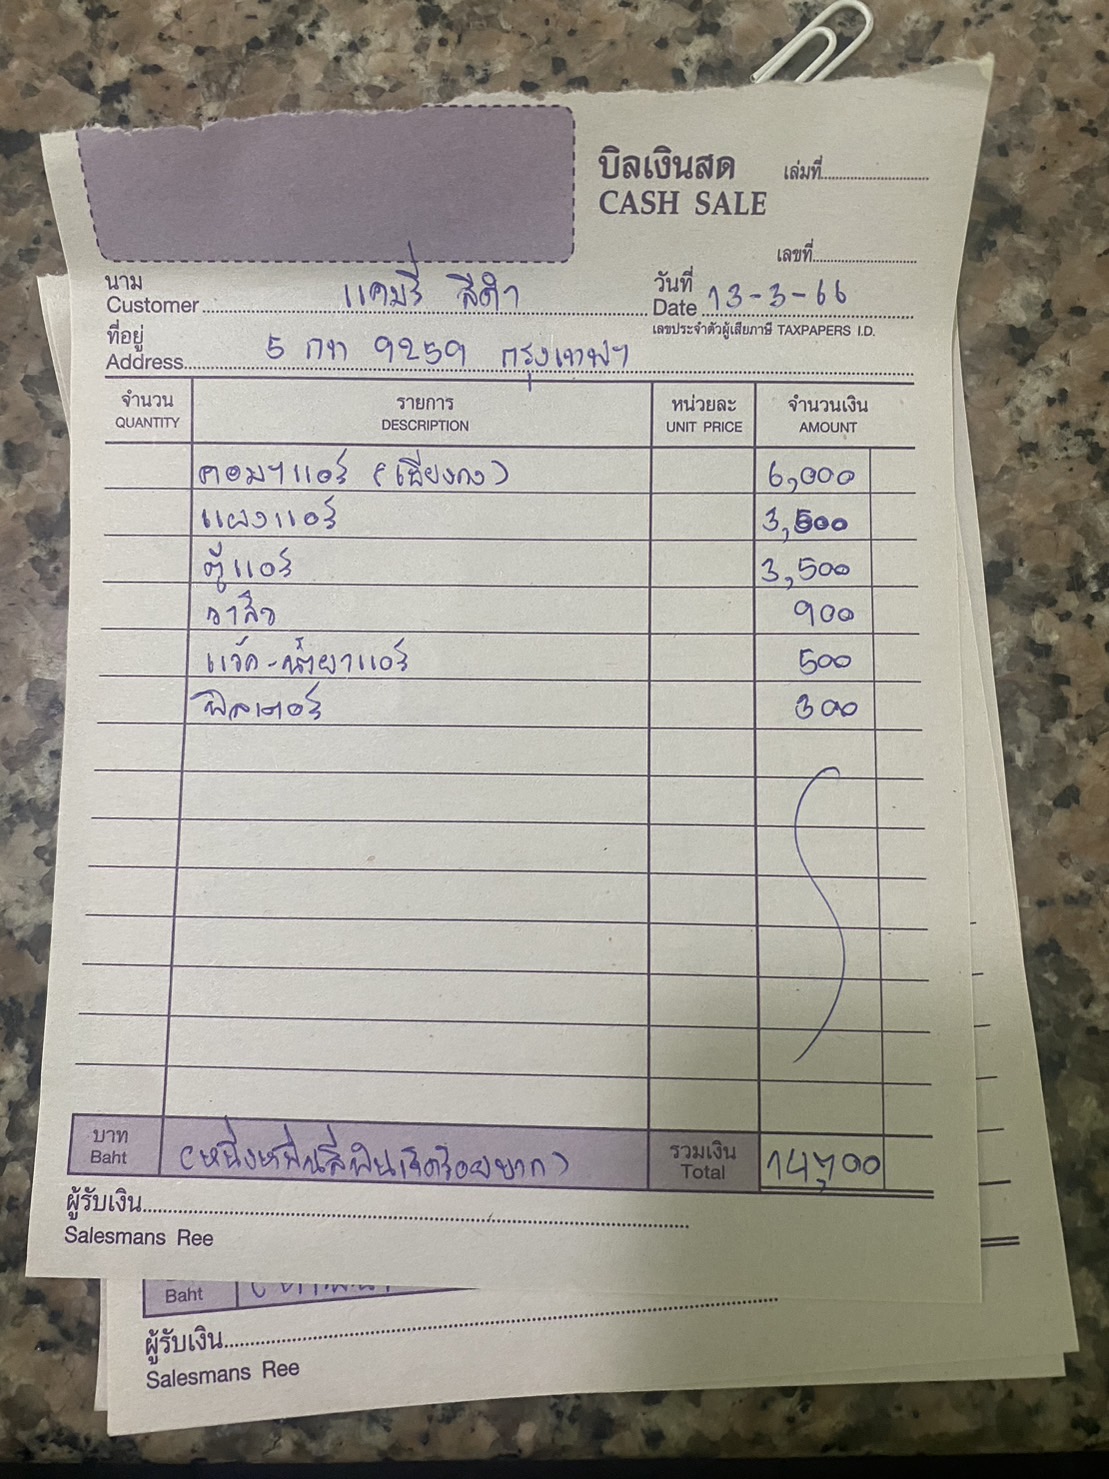 บิลเงินสด เล่มที่
CASH SALE
เลขที่
นาม
Customer แคมรี่ สีดำ
วันที่
Date 13-3-66
เลขประจำตัวผู้เสียภาษี TAXPAPERS I.D.
ที่อยู่
Address 5 กท 9259 กรุงเทพฯ
จำนวน รายการ หน่วยละ จำนวนเงิน
QUANTITY DESCRIPTION UNIT PRICE AMOUNT
คอมฯแอร์ (เซียงกง) 6,000
แผงแอร์ 3,500
ตู้แอร์ 3,500
วาล์ว 900
แว๊ค-น้ำยาแอร์ 500
ฟิลเตอร์ 300
บาท
Baht (หนึ่งหมื่นสี่พันเจ็ดร้อยบาท)
รวมเงิน
Total 14,700
ผู้รับเงิน
Salesmans Ree
Baht
ผู้รับเงิน
Salesmans Ree